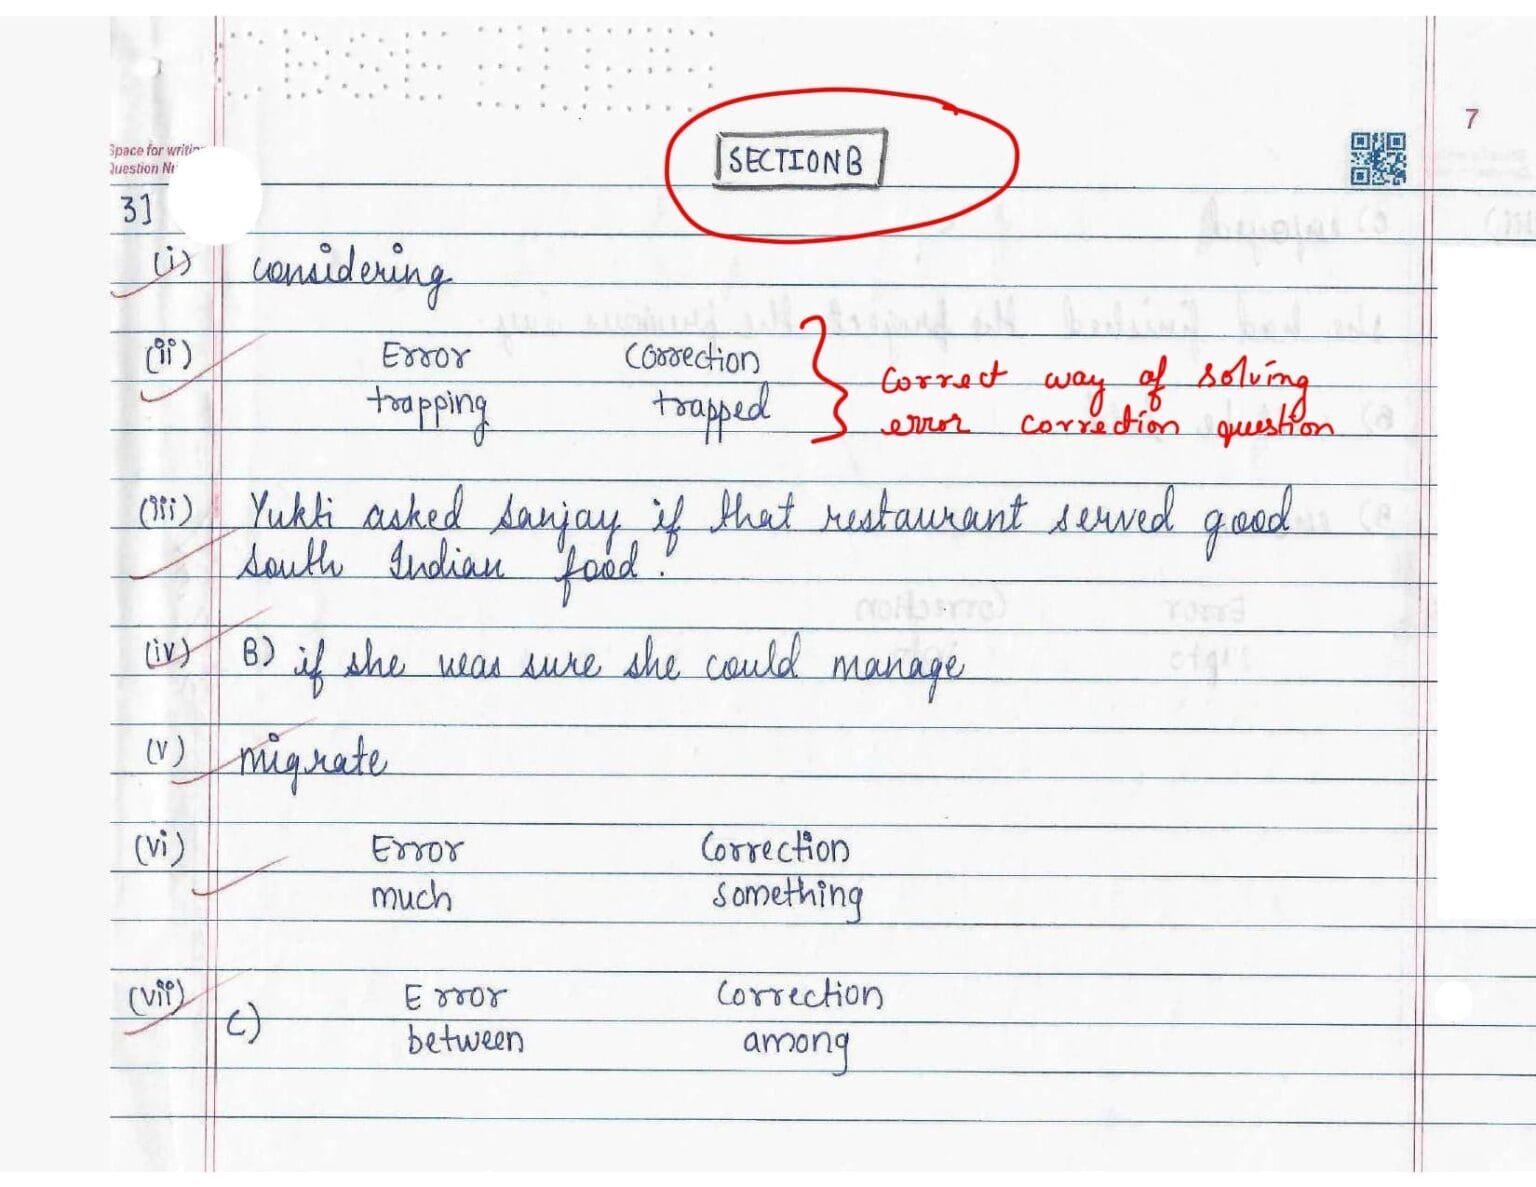 CBSE
7
SECTION B
Space for writing
Question
3]
(i) considering
(ii) Error Correction
trapping trapped
Correct way of solving
error correction question
(iii) Yukti asked Sanjay if that restaurant served good
South Indian food.
(iv) B) if she was sure she could manage
(v) migrate
(vi) Error Correction
much something
(vii) C) Error Correction
between among